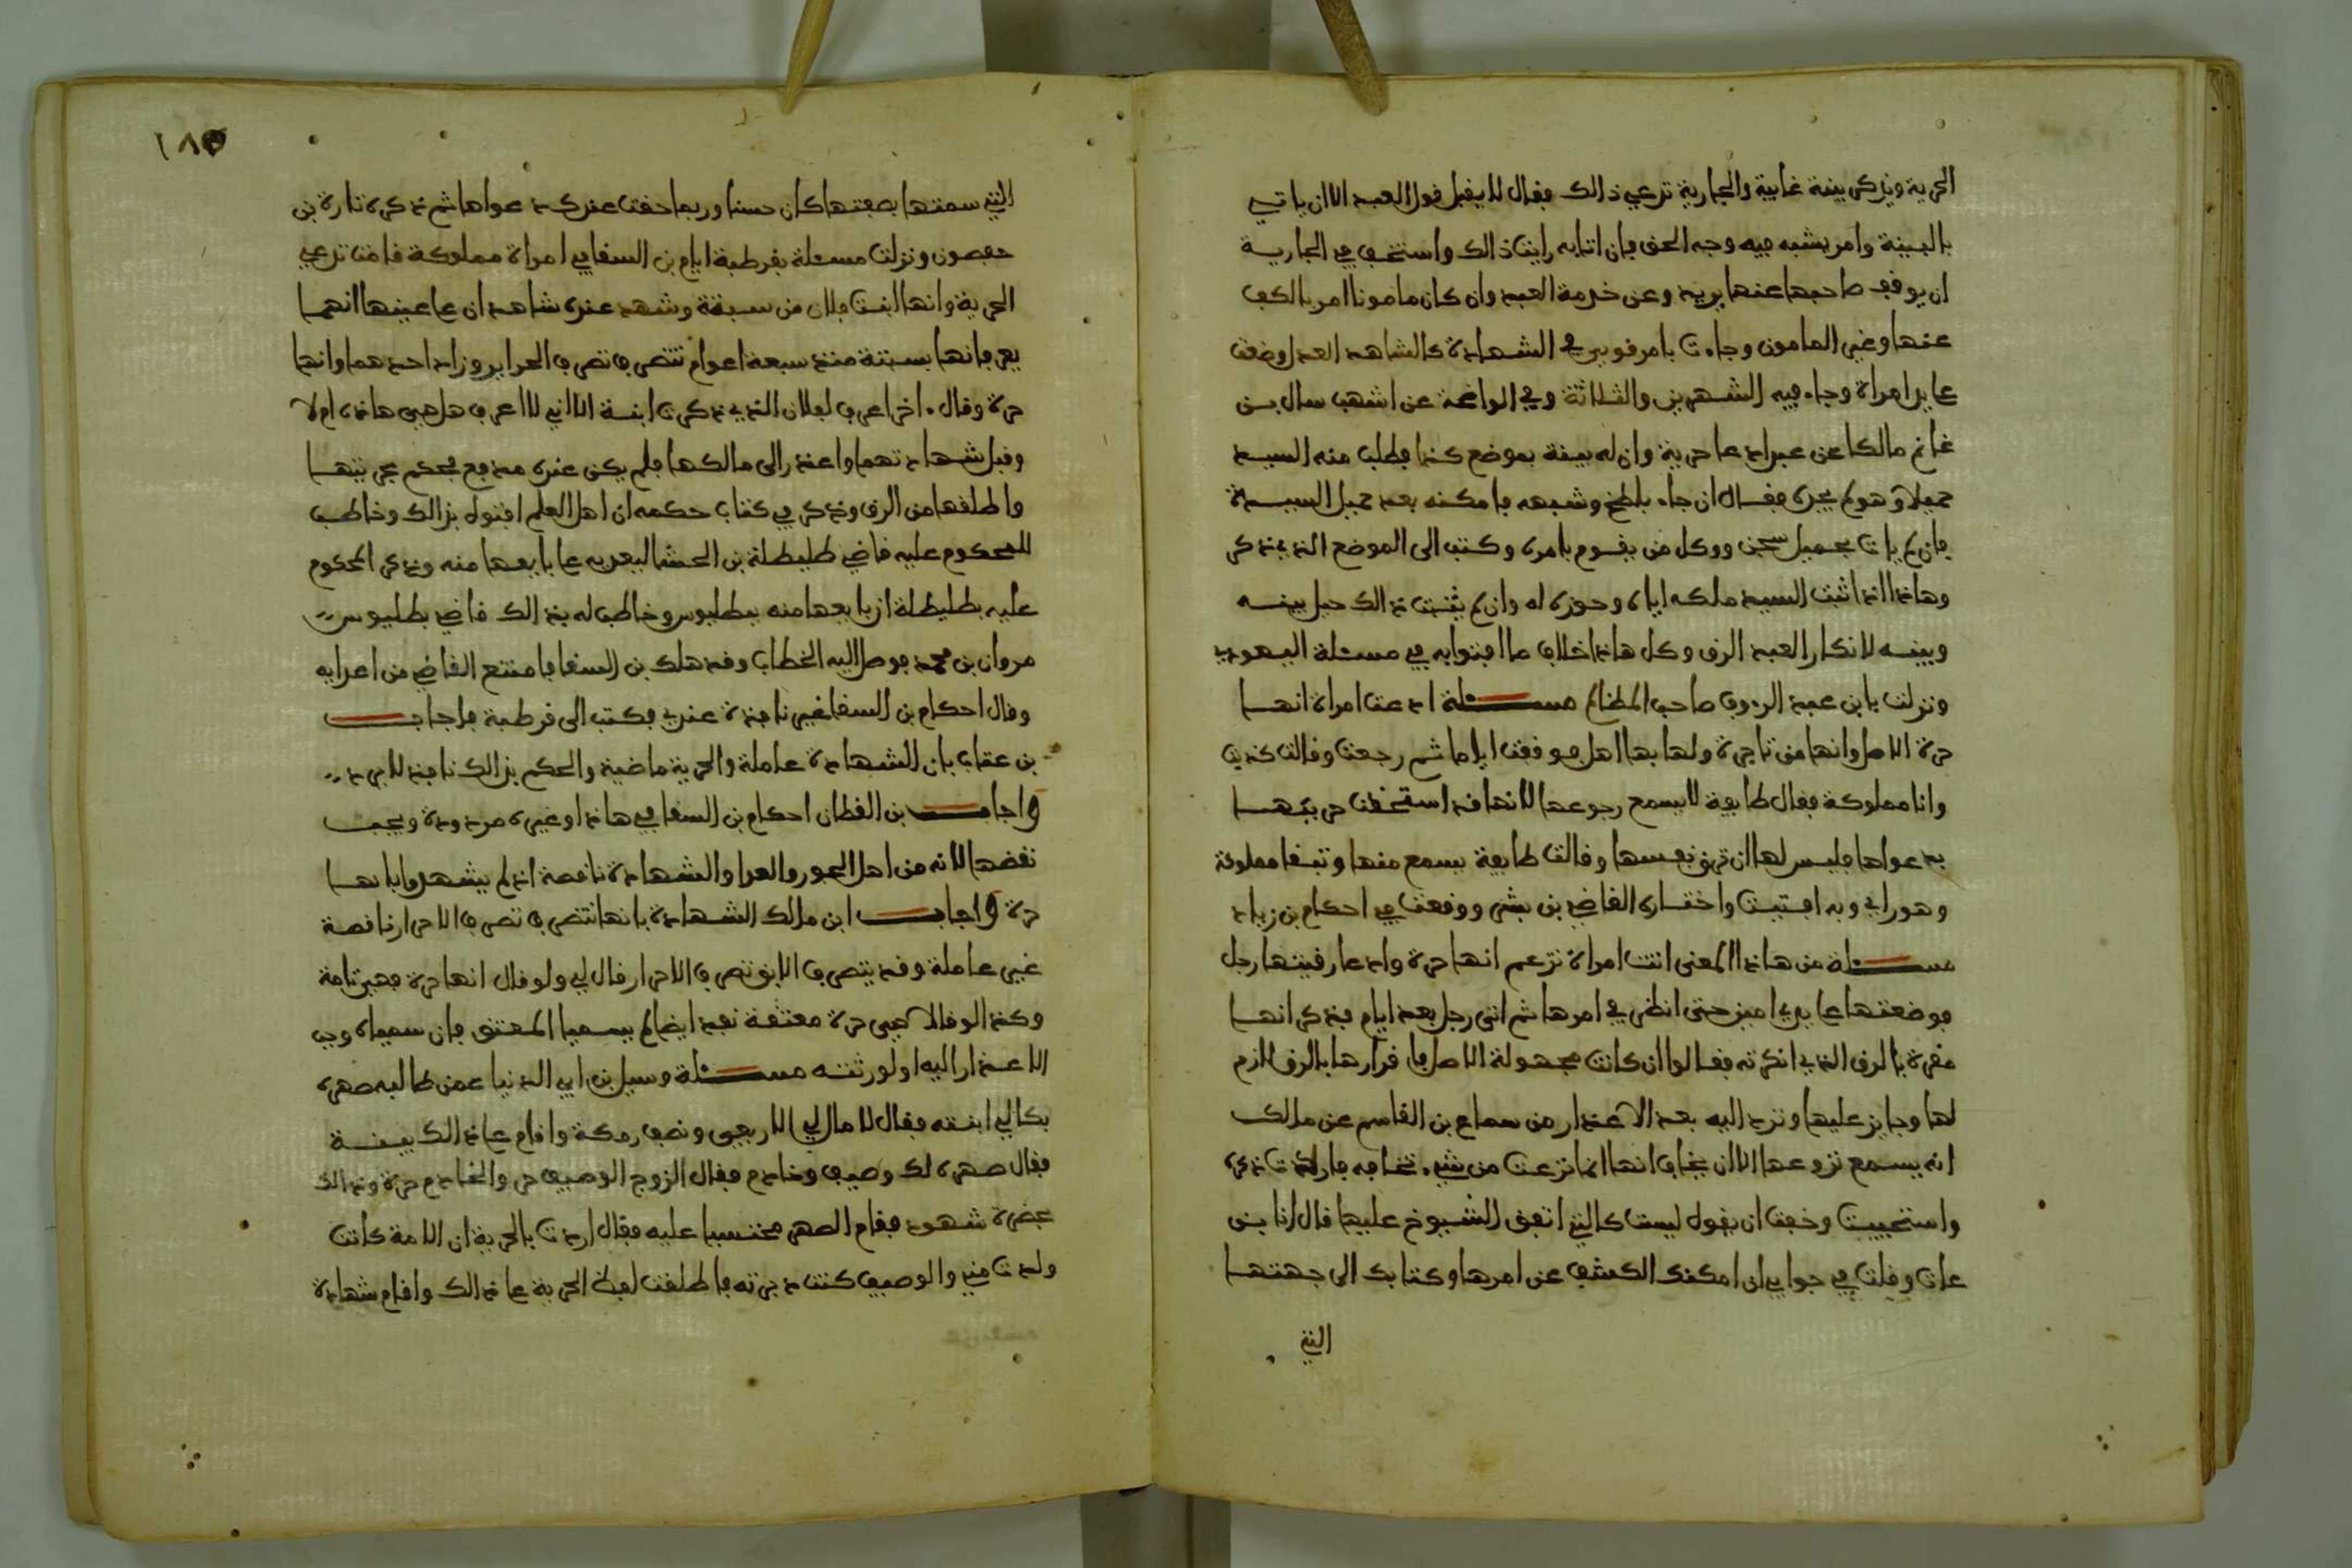 الحرية ويذكر بينة غايبة والجارية تدعي ذالك فقال لا يقبل قول العبد الا ان ياتي
بالبينة وامر يشبه فيه وجه الحق فان اتا به رايت ذالك واستحب في الجارية
ان يوقف صاحبها عنها يريد وعن خدمة العبد وان كان مامونا امر بالكف
عنها وغير المامون وجاءت بامر قوي في الشهادة كالشاهد العدل وضعت
على يد امراة وجاء فيه الشهرين والثلاثة وفي الواضحة عن اشهب سال بن
غانم مالكا عن عبد ادعا حرية وان له بينة بموضع كذا فطلب منه السيد
حميلا وهو لم يجده فقال ان جاء بلطخ وشبهه فامكنه بعد حميل السيدة
فان لم يات بحميل سجن ووكل من يقوم بامره وكتب الى الموضع الذي يذكر
وهاذا اذا اثبت السيد ملكه اياه وحوزه له وان لم يثبت ذالك حيل بينه
وبينه لانكار العبد الرق وكل هاذا خلاف ما افتوا به في مسئلة اليهودي
ونزلت بابن عبد الرءوف صاحب المظالم مسئلة ادعت امراة انها
حرة الاصل وانها من تاجرة ولها بها اهل فوقفت اياما ثم رجعت وقالت كذبت
وانا مملوكة فقال طايفة لا يسمع رجوعها لانها قد استحقت حريتها
بدعواها فليس لها ان ترق نفسها وقالت طايفة يسمع منها وتبقا مملوكة
وهو رايي وبه افتيت واختاره القاضي بن بشير ووقعت في احكام بن زياد
مسئلة من هاذا المعنى اتت امراة تزعم انها حرة وادعا رقيتها رجل
فوضعتها على يدي امين حتى انظر في امرها ثم اتى رجل بعد ايام فذكر انها
مقرة بالرق الذي انكرته فقالوا ان كانت مجهولة الاصل فاقرارها بالرق لازم
لها وجايز عليها وترد اليه بعد الاعذار من سماع بن القاسم عن مالك
انه يسمع نزوعها الا ان يخاف انها انما نزعت من شيء تخافه فاردت ذكره
واستحييت وخفت ان يقول ليست كالتي اتفق الشيوخ عليها قال لنا بن
عات وقلت في جوابي ان امكنك الكشف عن امرها وكتابك الى جهتها
التي
التي سمتها بصفتها كان حسنا وربما حقت عندك دعواها ثم ذكره تارة بن
حفصون ونزلت مسئلة بقرطبة ايام بن السقا في امراة مملوكة قامت تدعي
الحرية وانها ابنت فلان من سبتة وشهد عنده شاهدان على عينها انهما
يعرفانها بسبتة منذ سبعة اعوام تتصرف تصرف الحراير وزاد احدهما وانها
حرة وقال ءاخر اعرف لفلان الذي ذكرت ابنة الا اني لا اعرف هل هي هاذه ام لا
وقبل شهادتهما واعذر الى مالكها فلم يكن عنده مدفع فحكم بحريتها
واطلقها من الرق وذكر في كتاب حكمه ان اهل العلم افتوه بذالك وخاطب
للمحكوم عليه قاضي طليطلة بن الحشا ليعديه على بايعها منه وذكر المحكوم
عليه بطليطلة ان بايعها منه ببطليوس وخاطب له بذالك قاضي بطليوس
مروان بن محمد فوصل اليه الخطاب وقد هلك بن السقا فامتنع القاضي من اعدايه
وقال احكام بن السقا غير نافذة عندي فكتب الى قرطبة فاجاب
بن عتاب بان الشهادة عاملة والحرية ماضية والحكم بذالك نافذ لا يرد
واجاب بن القطان احكام بن السقا في هاذا وغيره مردودة ويجب
نقضها لانه من اهل الجور والعدا والشهادة ناقصة اذ لم يشهدوا بانها
حرة واجاب ابن مالك الشهادة بانها تتصرف تصرف الاحرار ناقصة
غير عاملة وقد يتصرف الابق تصرف الاحرار قال لي ولو قال انها حرة فهي تامة
وكذا لو قالا هي حرة معتقة نفذ ايضا لم يسميا المعتق فان سمياه وجب
الاعذار اليه او لورثته مسئلة وسيل بن ابي الدنيا عمن طالبه صهره
بكالي ابنته فقال لا مال لي الا ربعي ونصف رمكة واقام على ذالك بينة
فقال صهره لك وصيف وخادم فقال الزوج الوصيف حر والخادم حرة وذالك
بحضرة شهود فقام الصهر محتسبا عليه فقال اردت بالحرية ان الامة كانت
ولدت مني والوصيف كنت دبرته فاطلقت لفظ الحرية على ذالك واقام شهادة